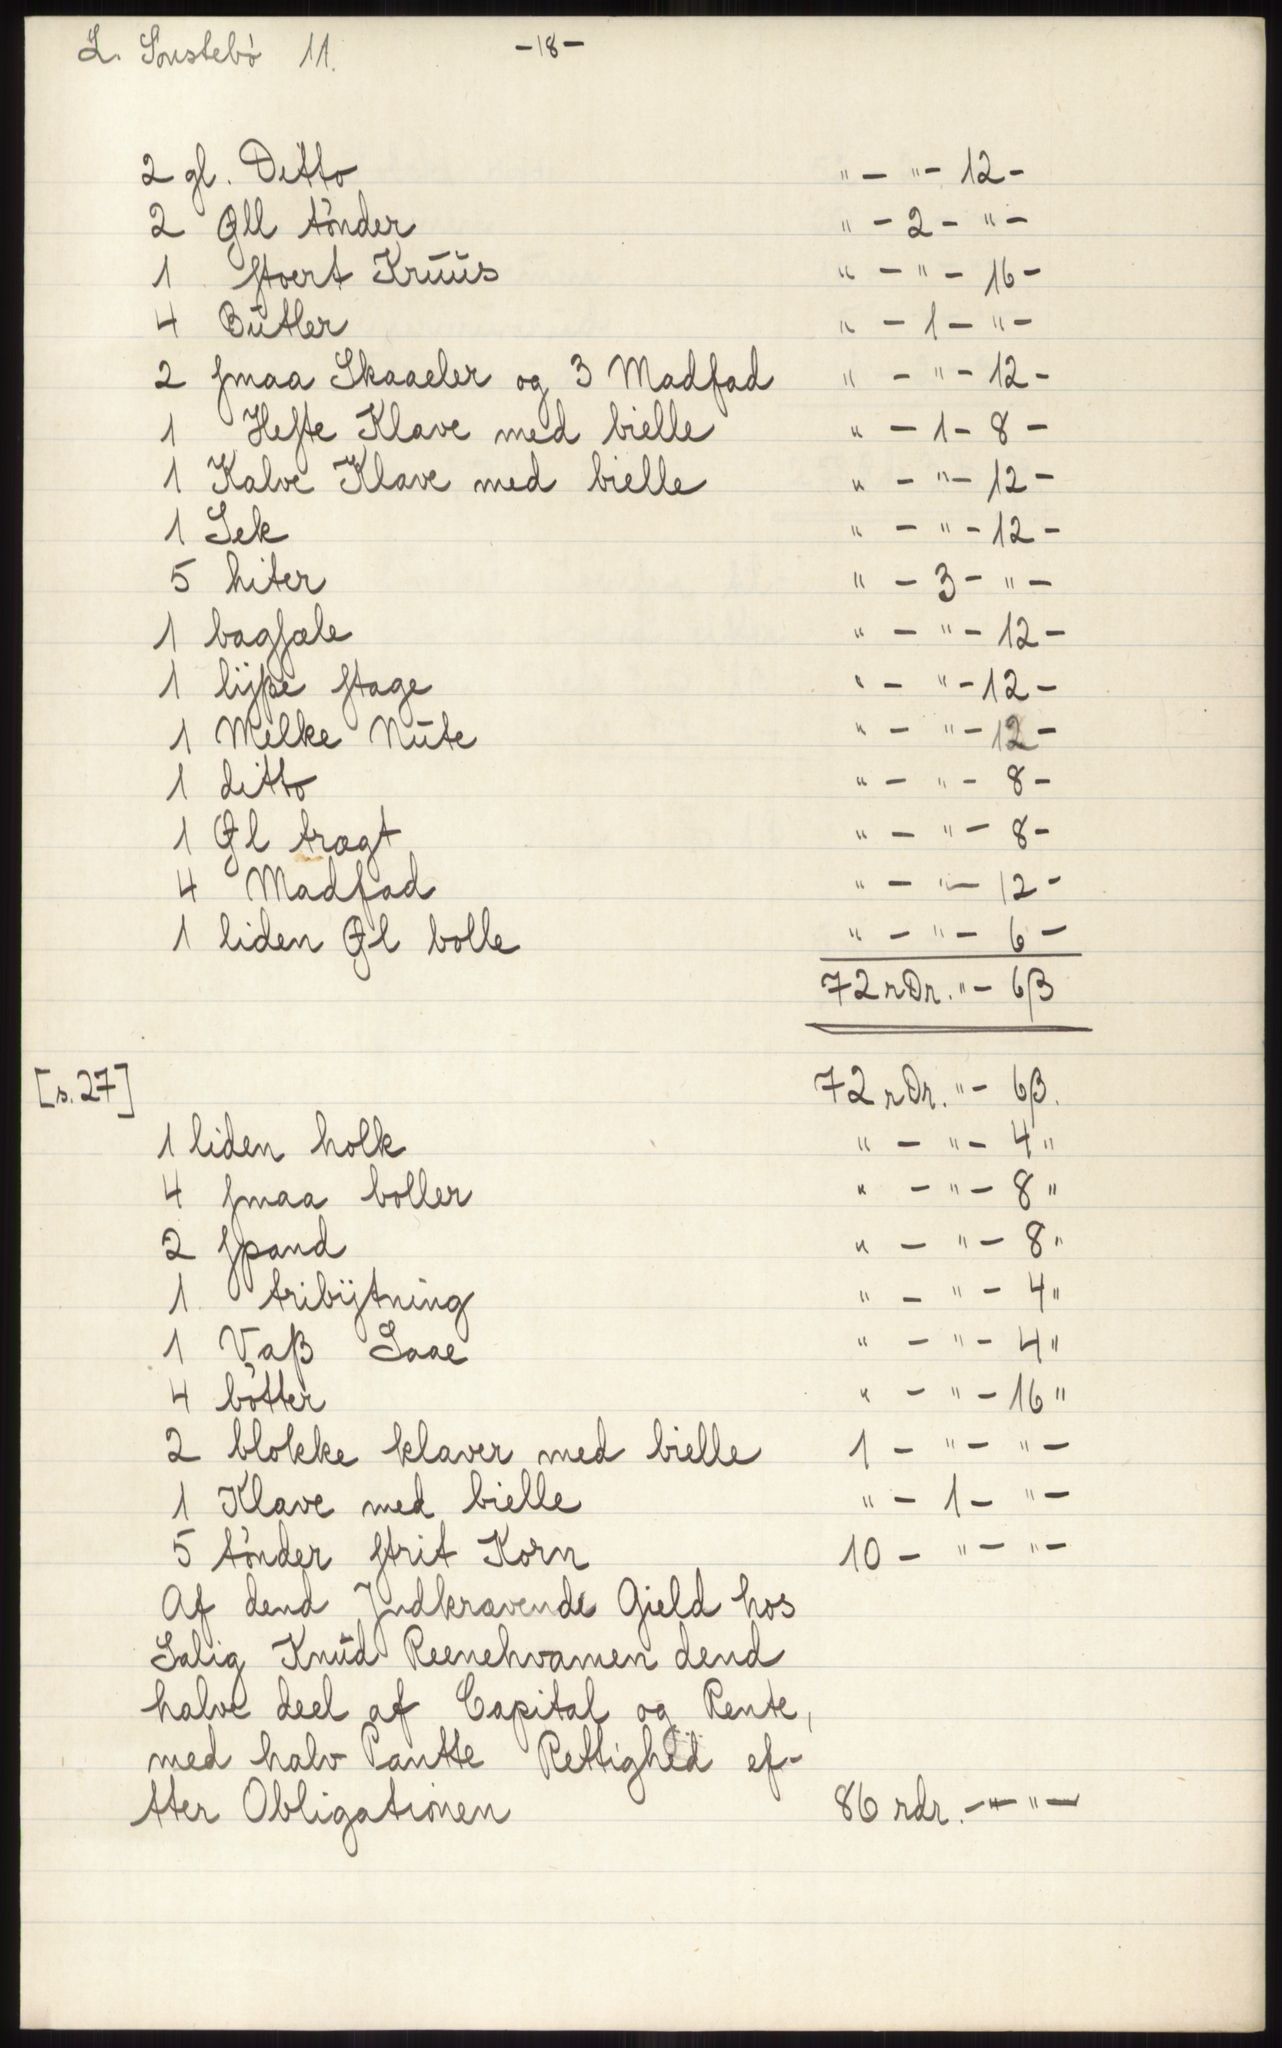 L. Sønstebø 11. -18-
2 gl. Ditto " - " - 12 -
2 Øll tønder " - 2 - " -
1 stoert Kruus " - " - 16 -
4 Butler " - 1 - " -
2 smaa Skaaeler og 3 Madfad " - " - 12 -
1 Heste Klave med bielle " - 1 - 8 -
1 Kalve Klave med bielle " - " - 12 -
1 Sek " - " - 12 -
5 hiter " - 3 - " -
1 bagfæle " - " - 12 -
1 lyse stage " - " - 12 -
1 Melke Nute " - " - 12 -
1 ditto " - " - 8 -
1 Øl tragt " - " - 8 -
4 Madfad " - " - 12 -
1 liden Øl bolle " - " - 6 -
72 rDr. " - 6β
[s. 27] 72 rDr. " - 6β.
1 liden holk " - " - 4 "
4 smaa boller " - " - 8 "
2 spand " - " - 8 "
1 tribytning " - " - 4 "
1 Vaß Saae " - " - 4 "
4 bøtter " - " - 16 "
2 blokke klaver med bielle 1 - " - " -
1 Klave med bielle " - 1 - " -
5 tønder strit Korn 10 - " - " -
Af dend Jndkrævende Gield hos
Salig Knud Reenehvamen dend
halve deel af Capital og Rente,
med halv Pantte Rettighed ef-
tter Obligationen 86 rdr. - " - " -